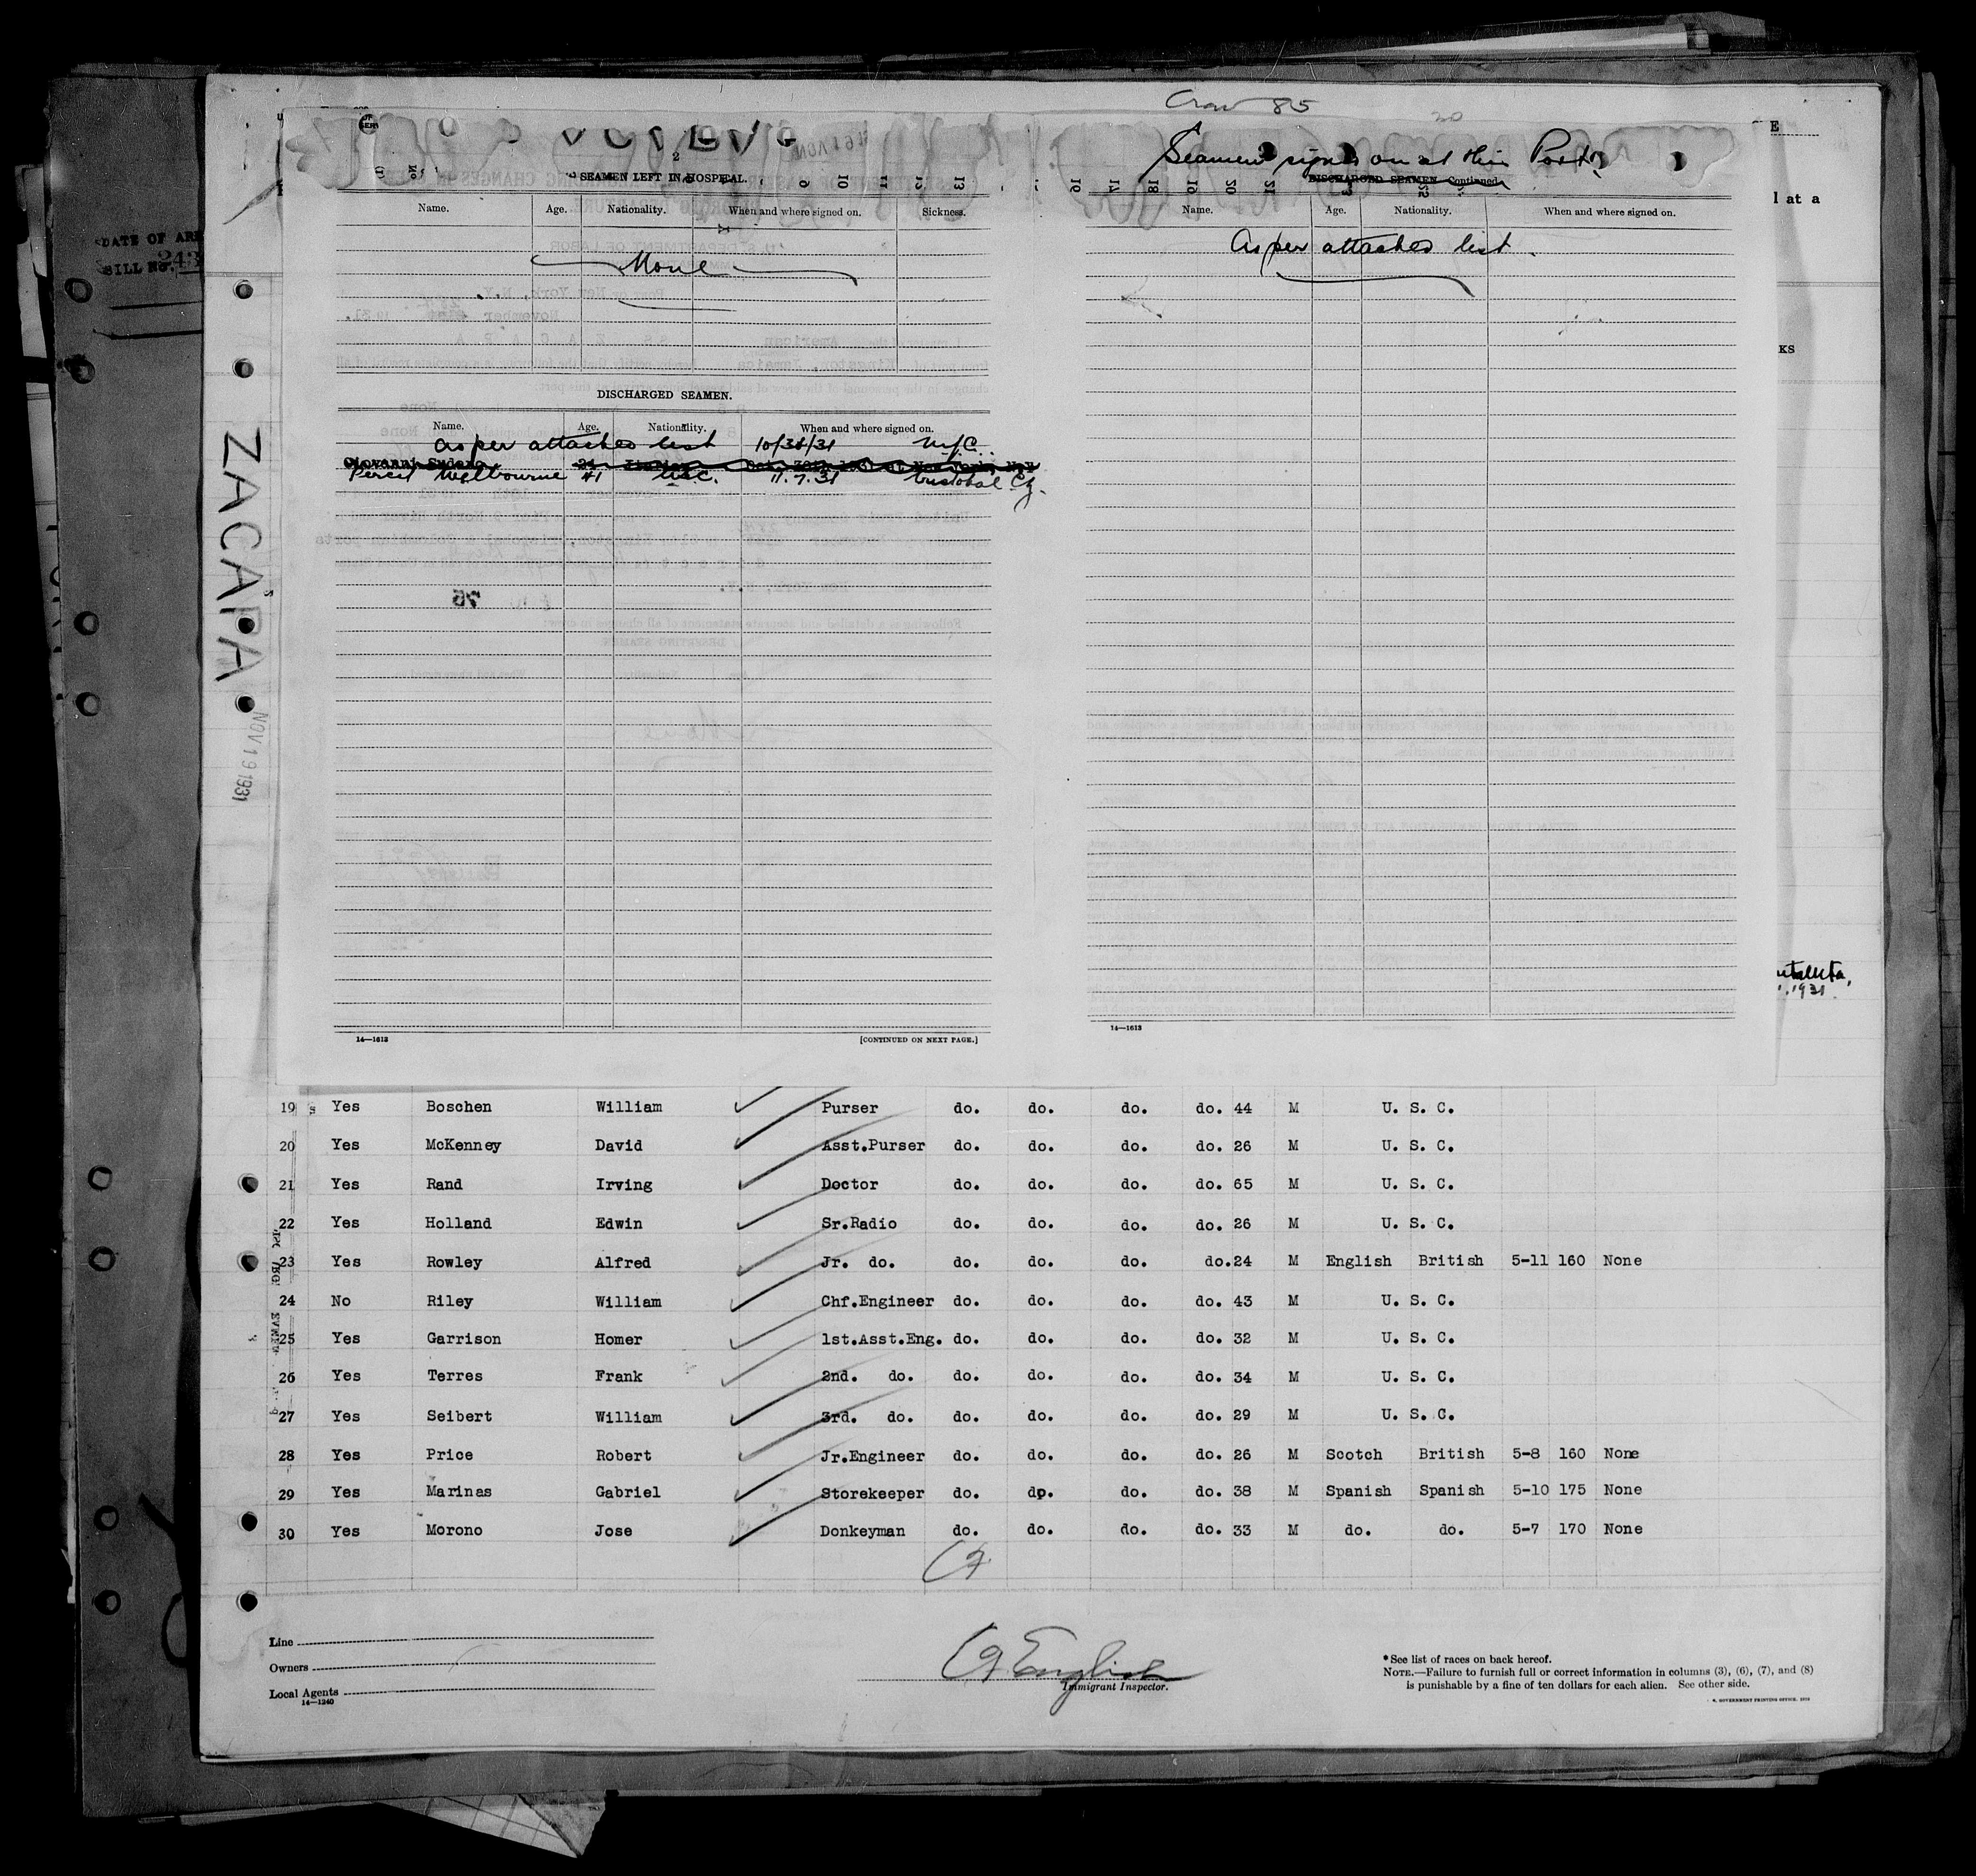 Crew 85
Seamen signed on at this Port.
DATE OF ARR
BILL No. 243
ZACAPA
NOV 19 1931
2
SEAMEN LEFT IN HOSPITAL.
Name. Age. Nationality. When and where signed on. Sickness.
None
DISCHARGED SEAMEN.
Name. Age. Nationality. When and where signed on.
As per attached list 10/31/31 N.Y.C.
Giovanni
Percy Melbourne 41 U.S.C. 11.7.31 Cristobal C.Z.
75
14—1613 [CONTINUED ON NEXT PAGE.]
DISCHARGED SEAMEN—Continued.
Name. Age. Nationality. When and where signed on.
As per attached list.
14—1613
E
l at a
KS
1931
19 Yes Boschen William Purser do. do. do. do. 44 M U. S. C.
20 Yes McKenney David Asst.Purser do. do. do. do. 26 M U. S. C.
21 Yes Rand Irving Doctor do. do. do. do. 65 M U. S. C.
22 Yes Holland Edwin Sr.Radio do. do. do. do. 26 M U. S. C.
23 Yes Rowley Alfred Jr. do. do. do. do. do. 24 M English British 5-11 160 None
24 No Riley William Chf.Engineer do. do. do. do. 43 M U. S. C.
25 Yes Garrison Homer 1st.Asst.Eng. do. do. do. do. 32 M U. S. C.
26 Yes Terres Frank 2nd. do. do. do. do. do. 34 M U. S. C.
27 Yes Seibert William 3rd. do. do. do. do. do. 29 M U. S. C.
28 Yes Price Robert Jr.Engineer do. do. do. do. 26 M Scotch British 5-8 160 None
29 Yes Marinas Gabriel Storekeeper do. do. do. do. 38 M Spanish Spanish 5-10 175 None
30 Yes Morono Jose Donkeyman do. do. do. do. 33 M do. do. 5-7 170 None
Line
Owners
Local Agents
14—1240
English
Immigrant Inspector.
* See list of races on back hereof.
NOTE.—Failure to furnish full or correct information in columns (3), (6), (7), and (8)
is punishable by a fine of ten dollars for each alien. See other side.